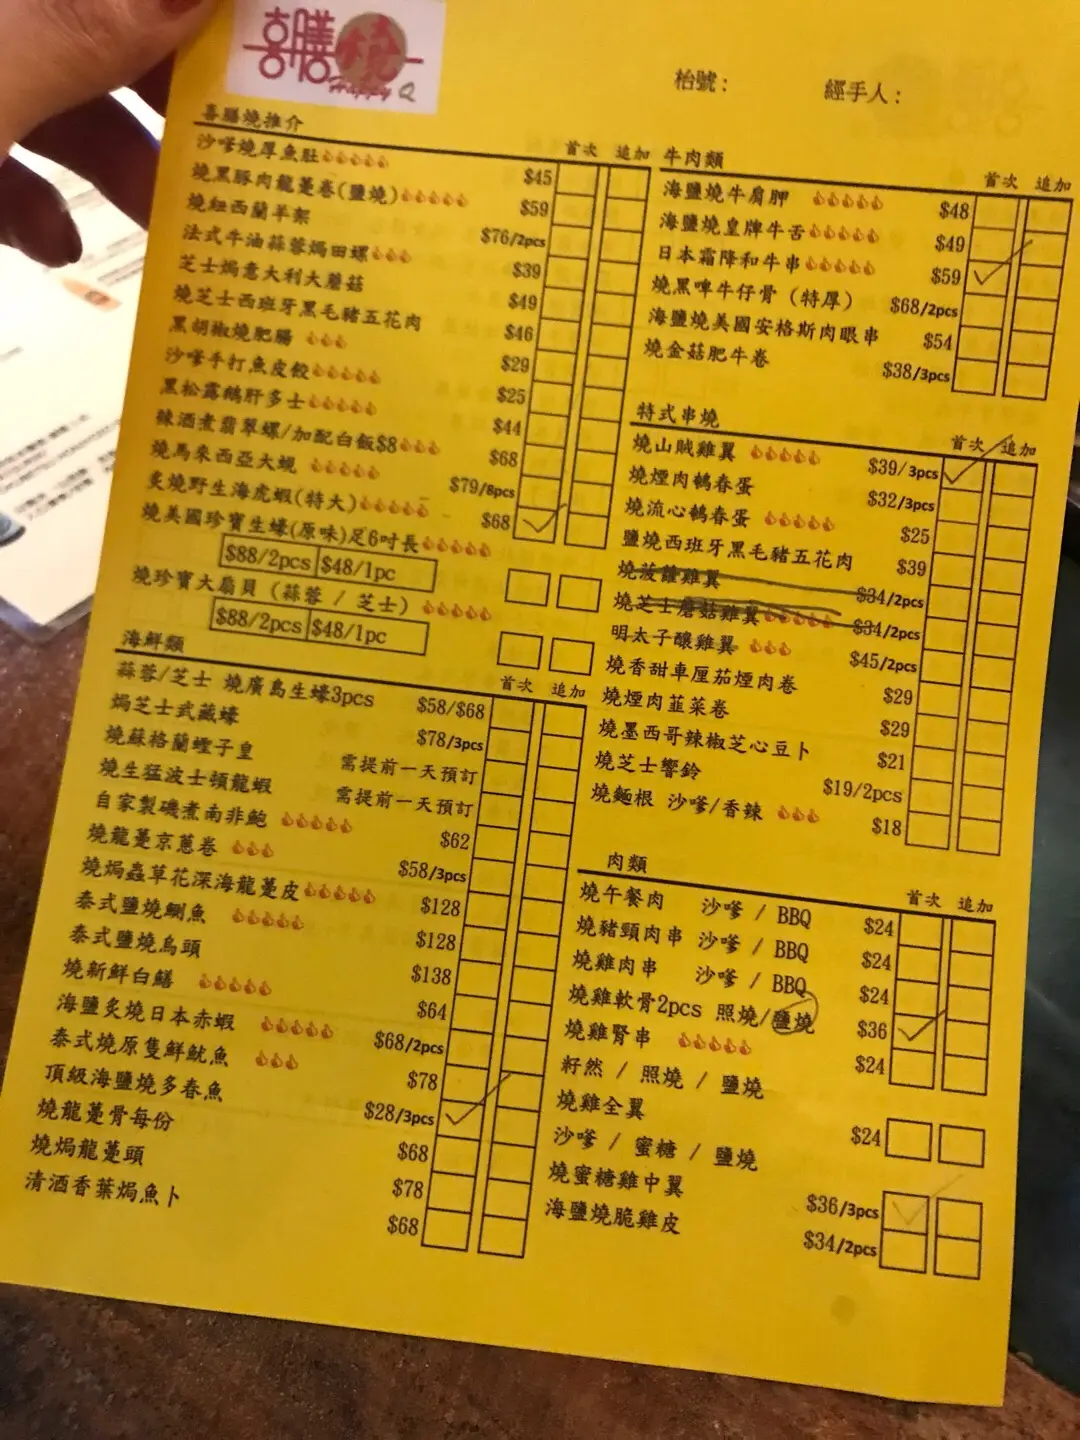 喜膳燒
Happy Q
枱號：
經手人：
喜膳燒推介
首次 追加
沙嗲燒厚魚肚 $45
燒黑豚肉龍躉卷(鹽燒) $59
燒紐西蘭羊架 $76/2pcs
法式牛油蒜蓉焗田螺 $39
芝士焗意大利大蘑菇 $49
燒芝士西班牙黑毛豬五花肉 $46
黑胡椒燒肥腸 $29
沙嗲手打魚皮餃 $25
黑松露鵝肝多士 $44
辣酒煮翡翠螺/加配白飯$8 $68
燒馬來西亞大蜆 $79/8pcs
炙燒野生海虎蝦(特大) $68
燒美國珍寶生蠔(原味)足6吋長
$88/2pcs $48/1pc
燒珍寶大扇貝 (蒜蓉 / 芝士)
$88/2pcs $48/1pc
海鮮類
首次 追加
蒜蓉/芝士 燒廣島生蠔3pcs $58/$68
焗芝士式藏蠔 $78/3pcs
燒蘇格蘭蟶子皇 需提前一天預訂
燒生猛波士頓龍蝦 需提前一天預訂
自家製磯煮南非鮑 $62
燒龍躉京蔥卷 $58/3pcs
燒焗蟲草花深海龍躉皮 $128
泰式鹽燒鰂魚 $128
泰式鹽燒烏頭 $138
燒新鮮白鱔 $64
海鹽炙燒日本赤蝦 $68/2pcs
泰式燒原隻鮮魷魚 $78
頂級海鹽燒多春魚 $28/3pcs
燒龍躉骨每份 $68
燒焗龍躉頭 $78
清酒香葉焗魚卜 $68
牛肉類
首次 追加
海鹽燒牛肩胛 $48
海鹽燒皇牌牛舌 $49
日本霜降和牛串 $59
燒黑啤牛仔骨 (特厚) $68/2pcs
海鹽燒美國安格斯肉眼串 $54
燒金菇肥牛卷 $38/3pcs
特式串燒
首次 追加
燒山賊雞翼 $39/3pcs
燒煙肉鵪春蛋 $32/3pcs
燒流心鵪春蛋 $25
鹽燒西班牙黑毛豬五花肉 $39
燒菠蘿雞翼 $34/2pcs
燒芝士蘑菇雞翼 $34/2pcs
明太子釀雞翼 $45/2pcs
燒香甜車厘茄煙肉卷 $29
燒煙肉韮菜卷 $29
燒墨西哥辣椒芝心豆卜 $21
燒芝士響鈴 $19/2pcs
燒麵根 沙嗲/香辣 $18
肉類
首次 追加
燒午餐肉 沙嗲 / BBQ $24
燒豬頸肉串 沙嗲 / BBQ $24
燒雞肉串 沙嗲 / BBQ $24
燒雞軟骨2pcs 照燒/鹽燒 $36
燒雞腎串 $24
籽然 / 照燒 / 鹽燒
燒雞全翼 $24
沙嗲 / 蜜糖 / 鹽燒
燒蜜糖雞中翼 $36/3pcs
海鹽燒脆雞皮 $34/2pcs